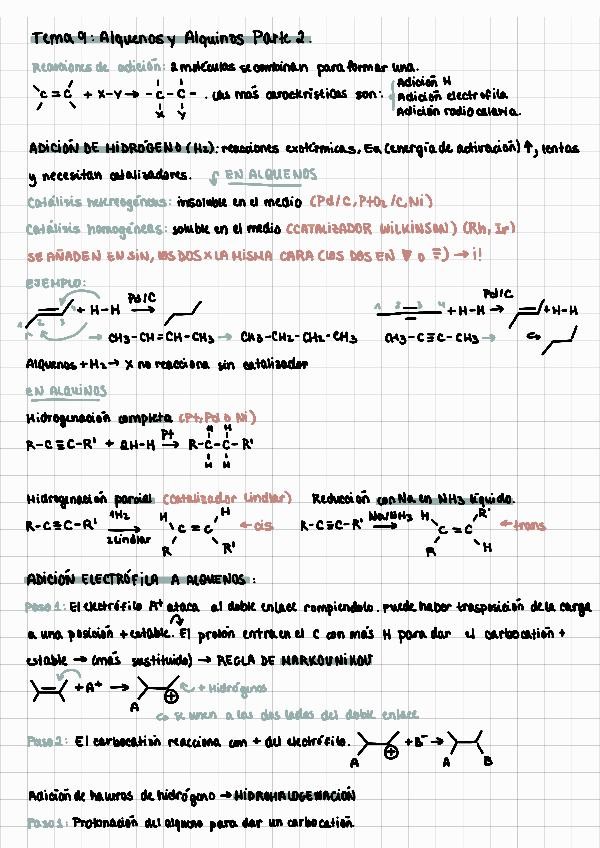 Tema 9: Alquenos y Alquinos Parte 2.
Reacciones de adición: 2 moléculas se combinan para formar una.
C=C + X-Y → -C-C- . Las más características son: Adición H
X Y
Adición electrófila
Adición radicalaria.
ADICIÓN DE HIDRÓGENO (H2): reacciones exotérmicas, Ea (energía de activación) ↑, lentas
y necesitan catalizadores. EN ALQUENOS
Catálisis heterogénea: insoluble en el medio (Pd/C, PtO2/C, Ni)
Catálisis homogénea: soluble en el medio (CATALIZADOR WILKINSON) (Rh, Ir)
SE AÑADEN EN SIN, LOS DOS X LA MISMA CARA (LOS DOS EN ▼ o ⩸) → ¡!
EJEMPLO:
+ H-H Pd/C →
1 2 3 4
1 2 3 4 + H-H Pd/C → + H-H
→ CH3-CH=CH-CH3 → CH3-CH2-CH2-CH3
CH3-C≡C-CH3 →
Alquenos + H2 → X no reacciona sin catalizador
EN ALQUINOS
Hidrogenación completa (Pt, Pd o Ni)
R-C≡C-R' + 2H-H Pt → R-C-C-R'
H H
H H
Hidrogenación parcial (catalizador Lindlar) Reducción con Na en NH3 líquido.
R-C≡C-R' 1H2 → 2 Lindlar H C=C H R R' ← cis
R-C≡C-R' Na/NH3 → H C=C R' R H ← trans
ADICIÓN ELECTRÓFILA A ALQUENOS:
Paso 1: El electrófilo A+ ataca al doble enlace rompiendolo. Puede haber trasposición de la carga
a una posición + estable. El protón entra en el C con más H para dar el carbocatión +
estable → (más sustituido) → REGLA DE MARKOVNIKOV
+ A+ → A ⊕ + Hidrógenos
↪ se unen a los dos lados del doble enlace
Paso 2: El carbocatión reacciona con + del electrófilo. A ⊕ + B- → A B
Adición de haluros de hidrógeno → HIDROHALOGENACIÓN
Paso 1: Protonación del alqueno para dar un carbocatión.